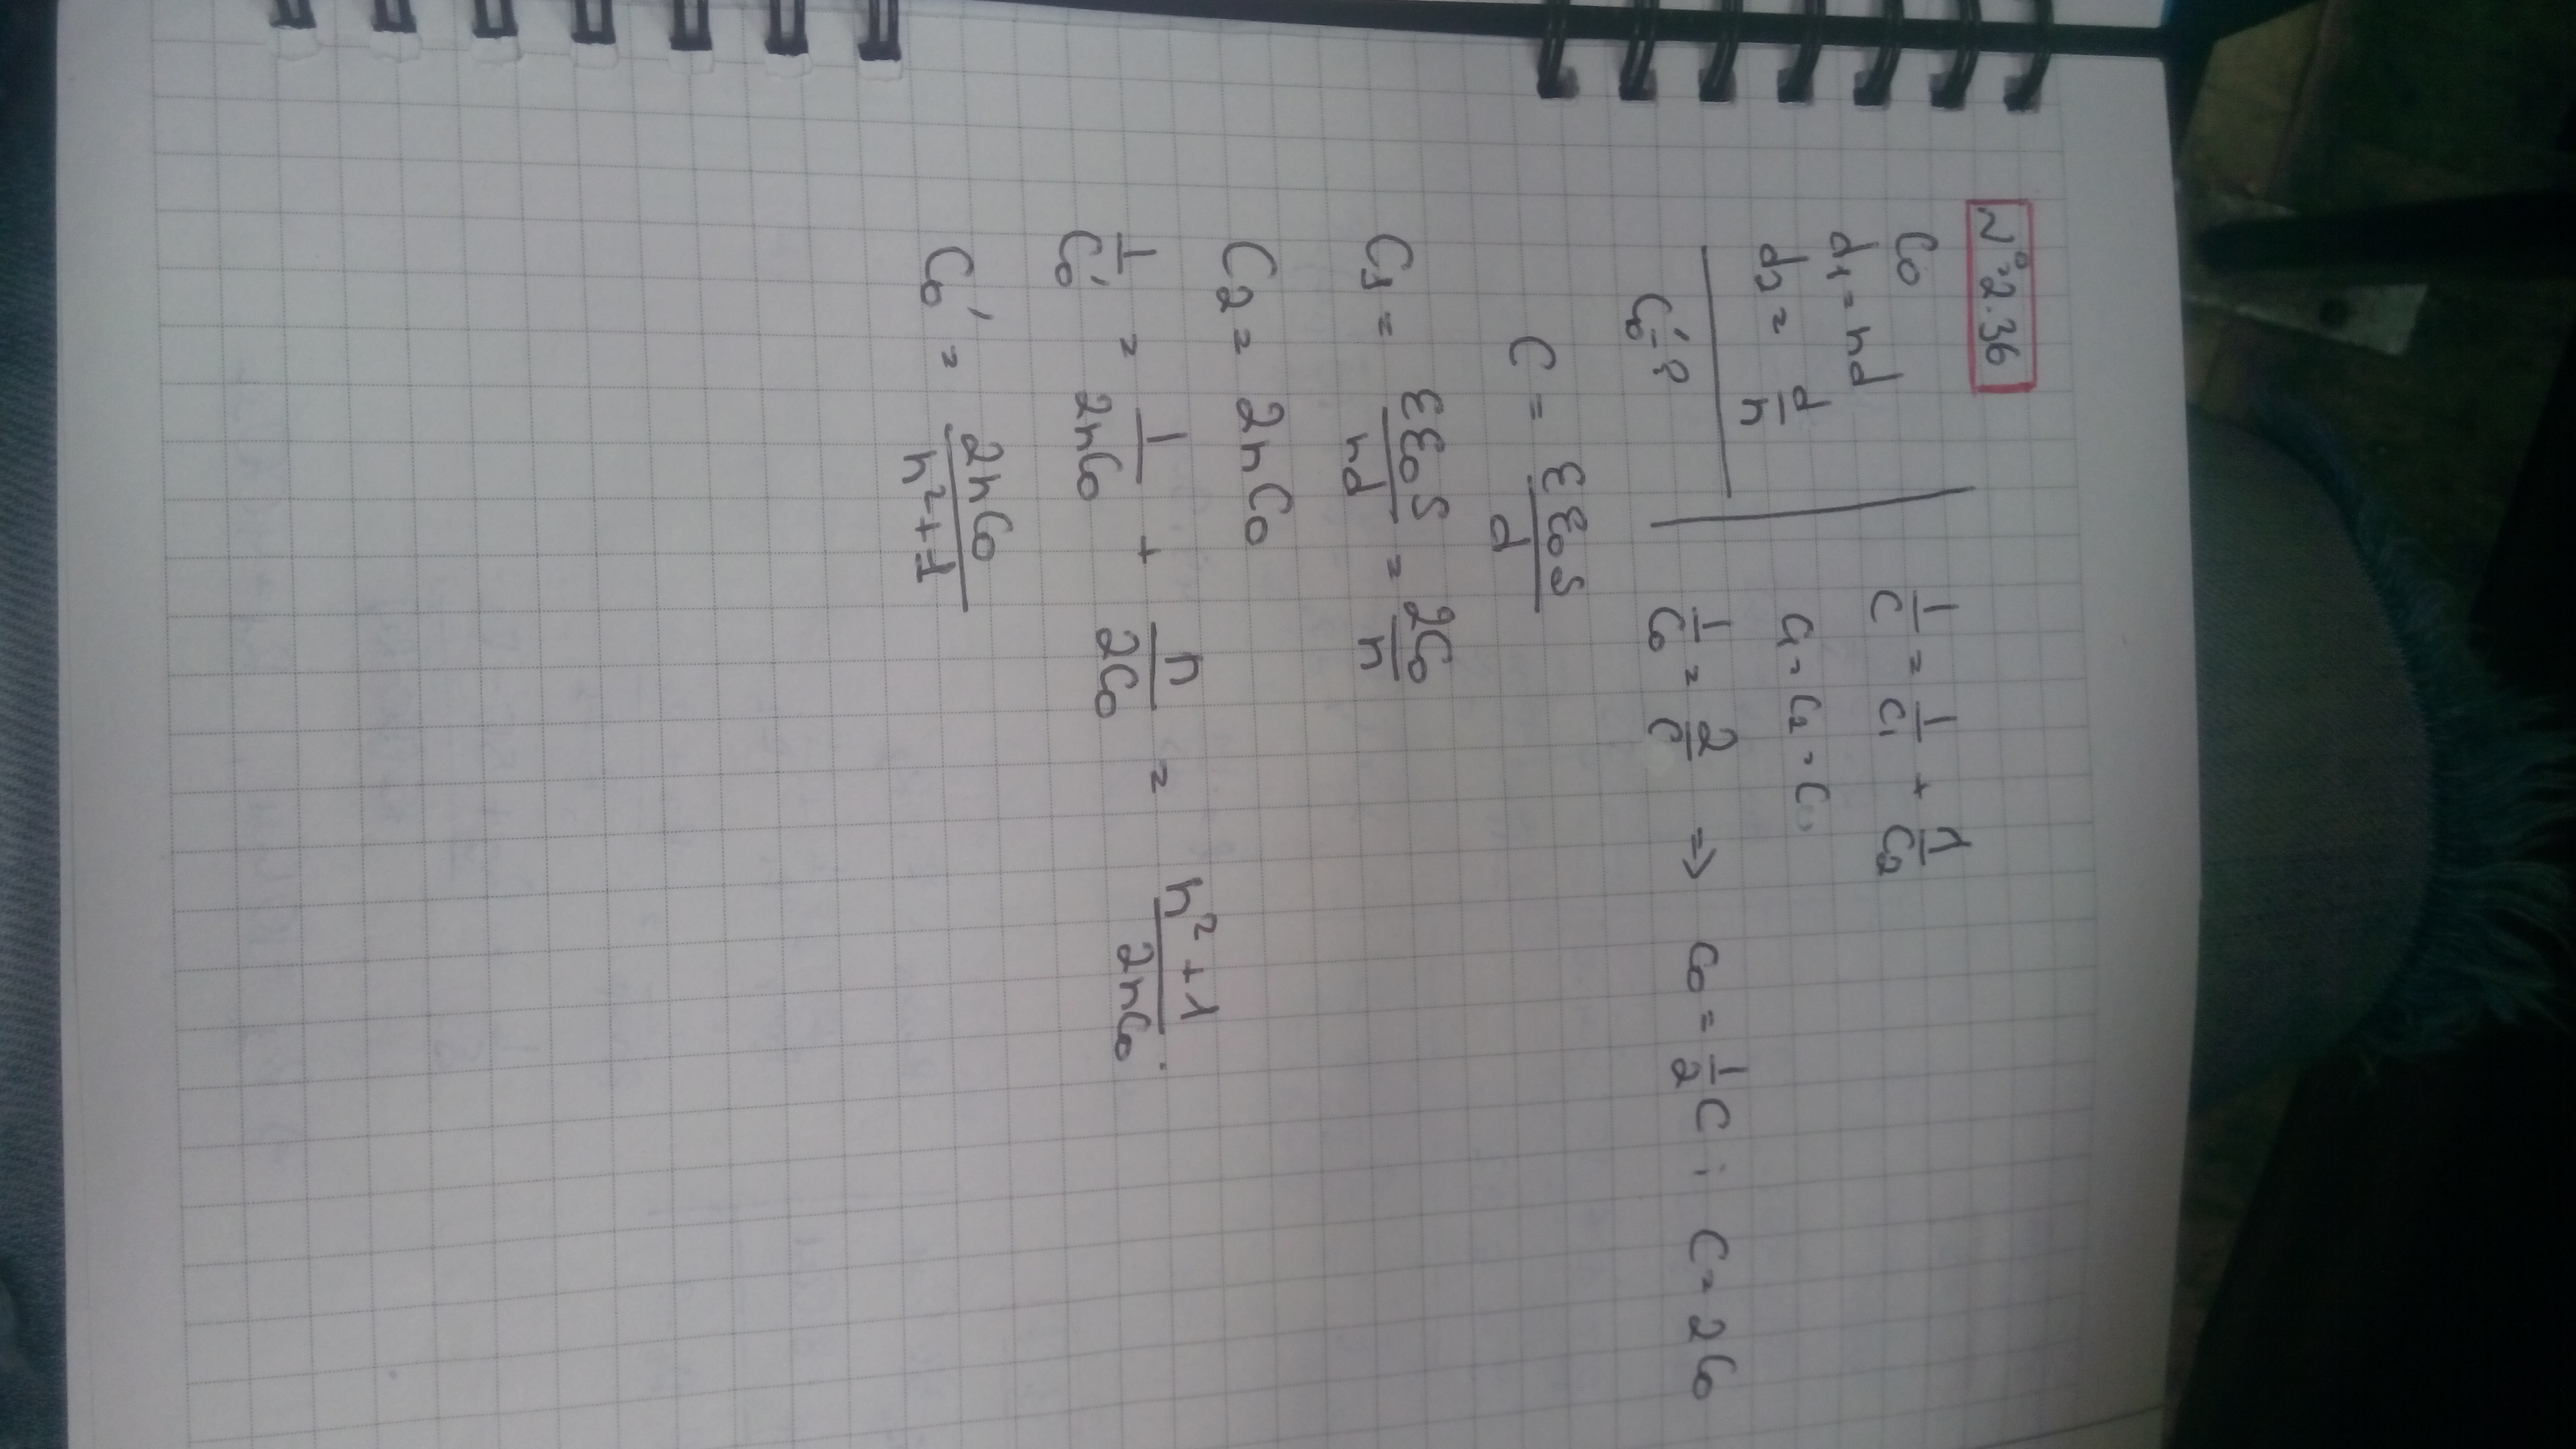 N° 2.36
C₀
d₁ = nd
d₂ = d/n
C₀' - ?
1/C = 1/C₁ + 1/C₂
C₁ = C₂ = C
1/C₀ = 2/C => C₀ = 1/2 C ; C = 2C₀
C = εε₀S/d
C₁ = εε₀S/nd = 2C₀/n
C₂ = 2nC₀
1/C₀' = 1/2nC₀ + n/2C₀ = n²+1/2nC₀.
C₀' = 2nC₀/n²+1